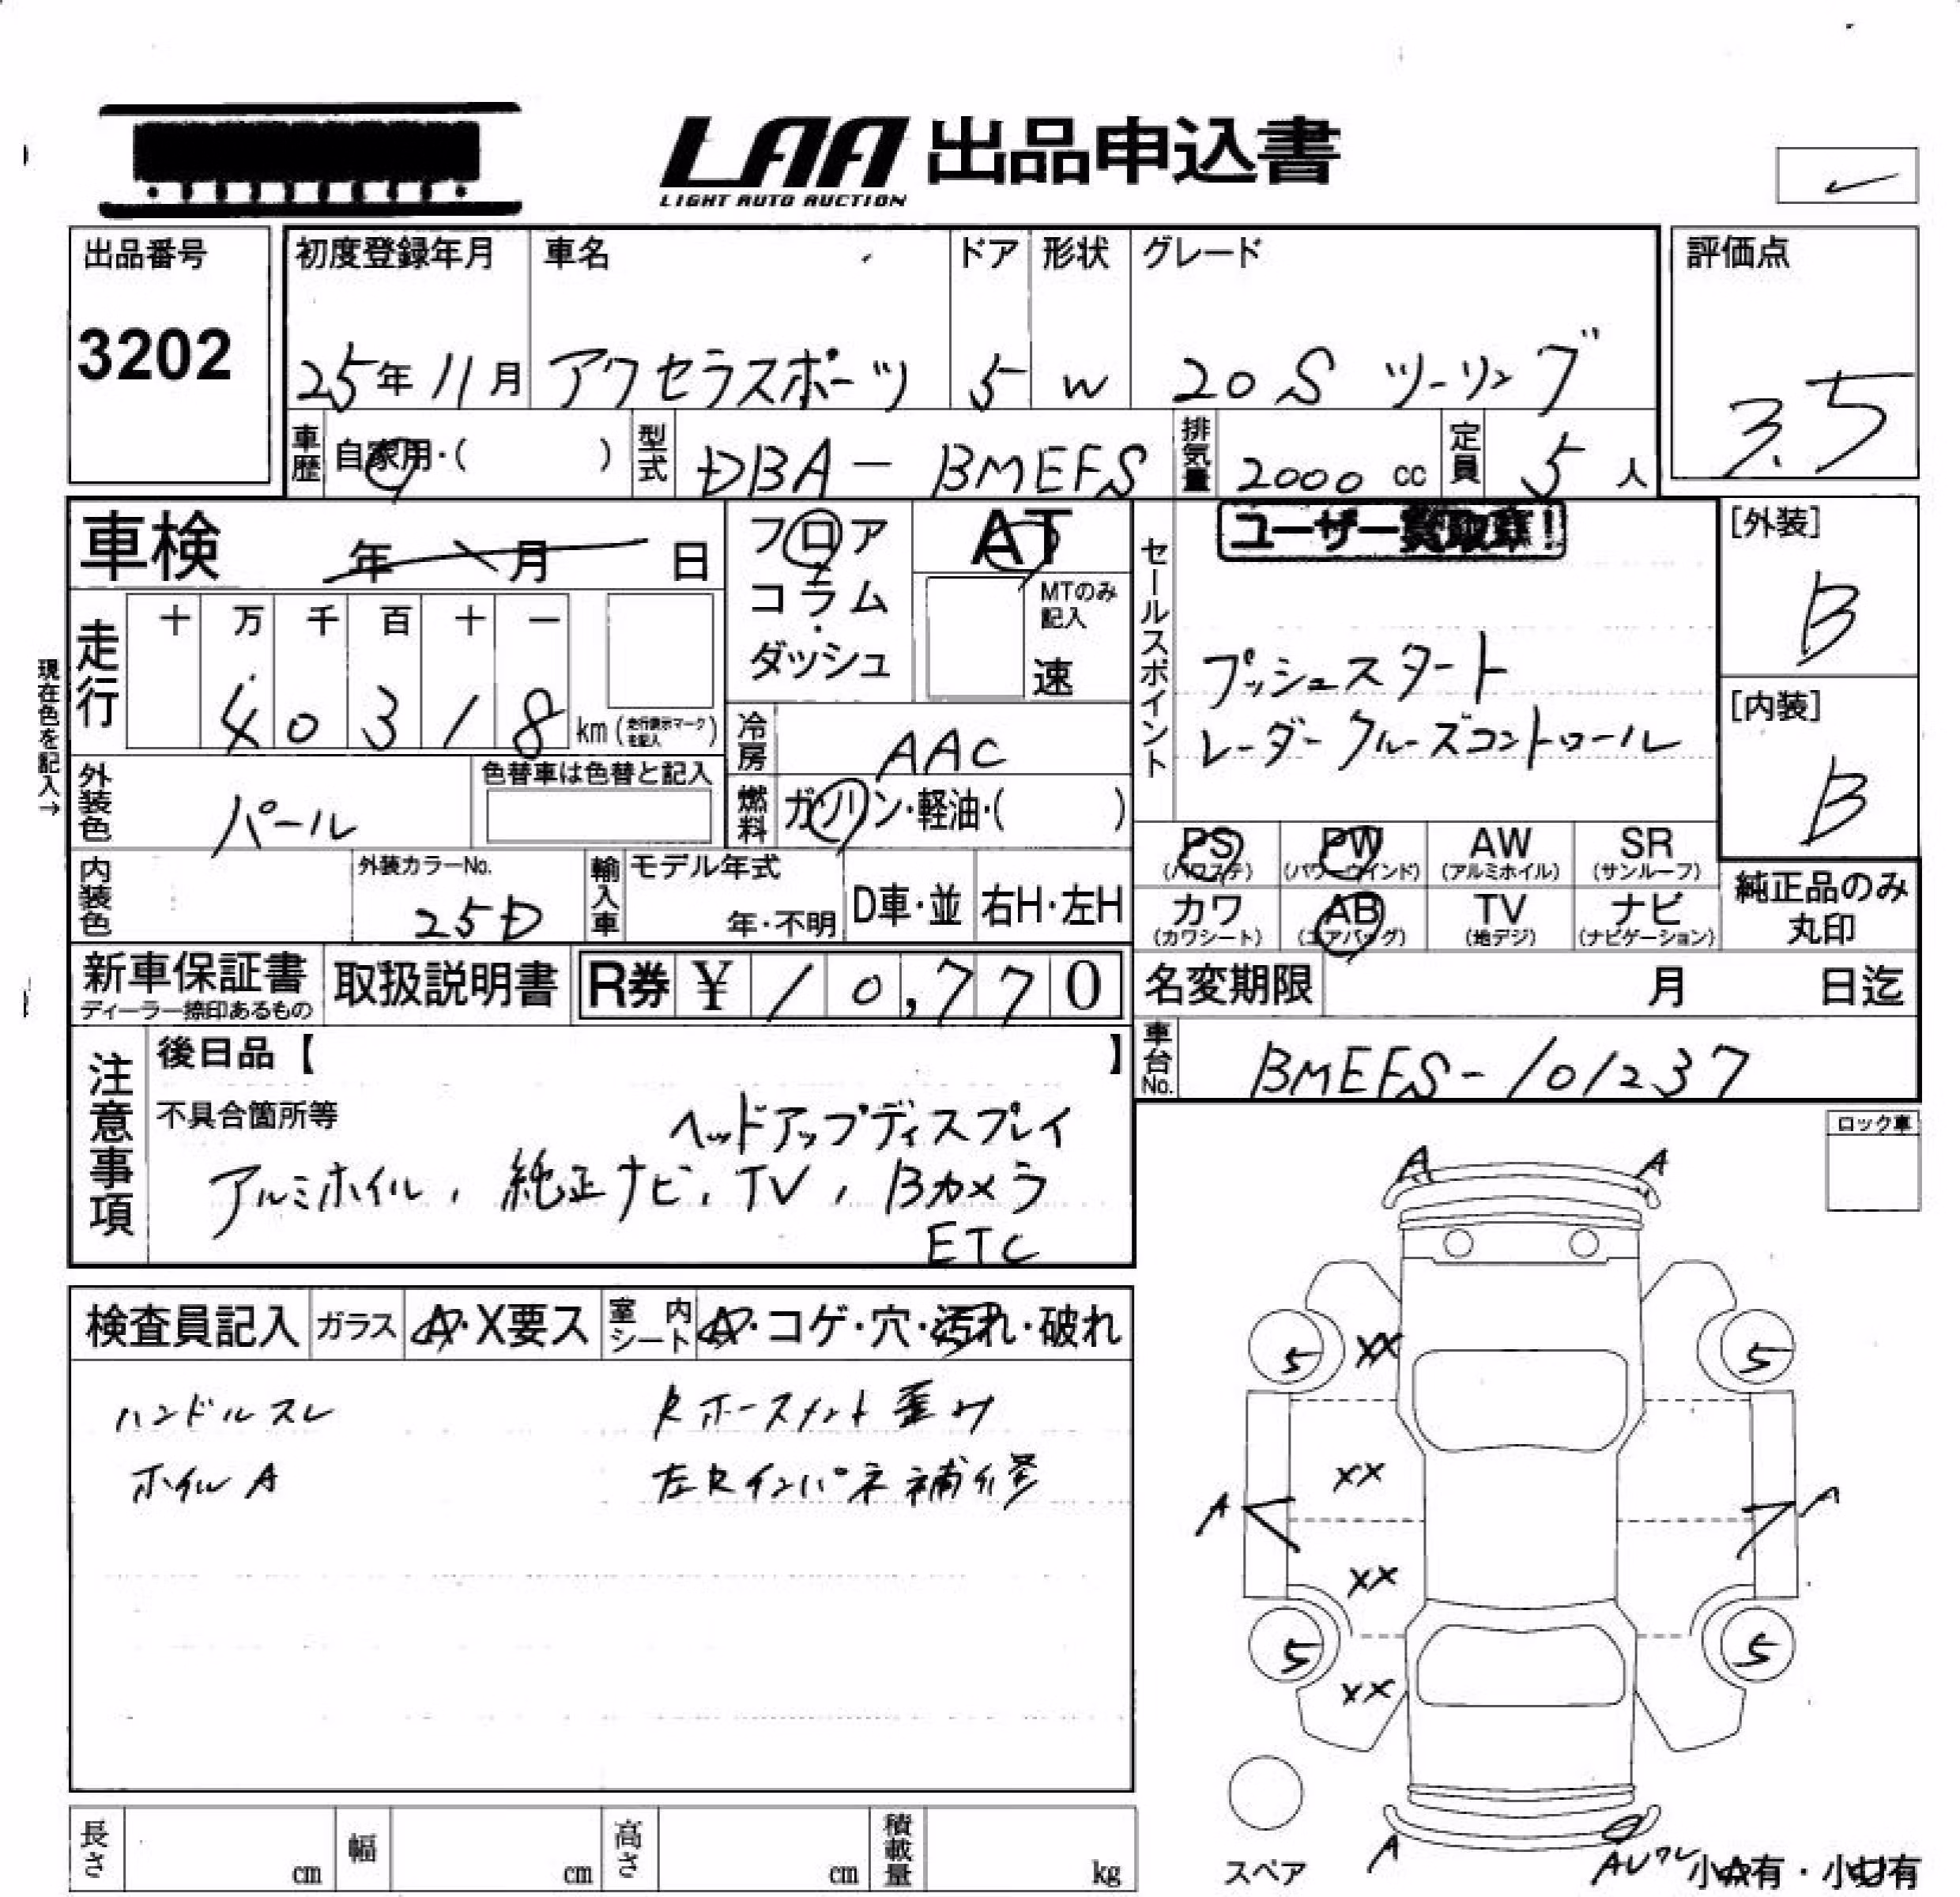 LAA 出品申込書
LIGHT AUTO AUCTION
出品番号
3202
初度登録年月
25年11月
車名
アクセラスポーツ
ドア
5
形状
W
グレード
20S ツーリング
評価点
3.5
車歴 自家用・( )
型式 DBA-BMEFS
排気量 2000 cc
定員 5 人
車検 年 月 日
フロア
コラム
・
ダッシュ
AT
MTのみ
記入
速
セールスポイント
ユーザー買取車!
プッシュスタート
レーダークルーズコントロール
[外装]
B
[内装]
B
現在色を記入→
走行
十 万 千 百 十 一
4 0 3 1 8 km (走行表示マークを記入)
冷房 AAC
燃料 ガソリン・軽油・( )
外装色 パール
色替車は色替と記入
内装色
外装カラーNo.
25D
輸入車
モデル年式
年・不明
D車・並
右H・左H
PS
(パワステ)
PW
(パワーウインド)
AW
(アルミホイル)
SR
(サンルーフ)
カワ
(カワシート)
AB
(エアバッグ)
TV
(地デジ)
ナビ
(ナビゲーション)
純正品のみ
丸印
新車保証書
ディーラー捺印あるもの
取扱説明書
R券 ¥ 10,770
名変期限 月 日迄
車台No. BMEFS-101237
注意事項
後日品【 】
不具合箇所等
ヘッドアップディスプレイ
アルミホイル, 純正ナビ, TV, Bカメラ
ETC
ロック車
検査員記入
ガラス
A・X要ス
室内シート
A・コゲ・穴・汚れ・破れ
ハンドルスレ
Rホースメント歪み
ホイルA
左Rインパネ補修
A A
5 XX 5
XX
A A
XX
5 5
XX
スペア
A
小A有・小U有
長さ cm
幅 cm
高さ cm
積載量 kg